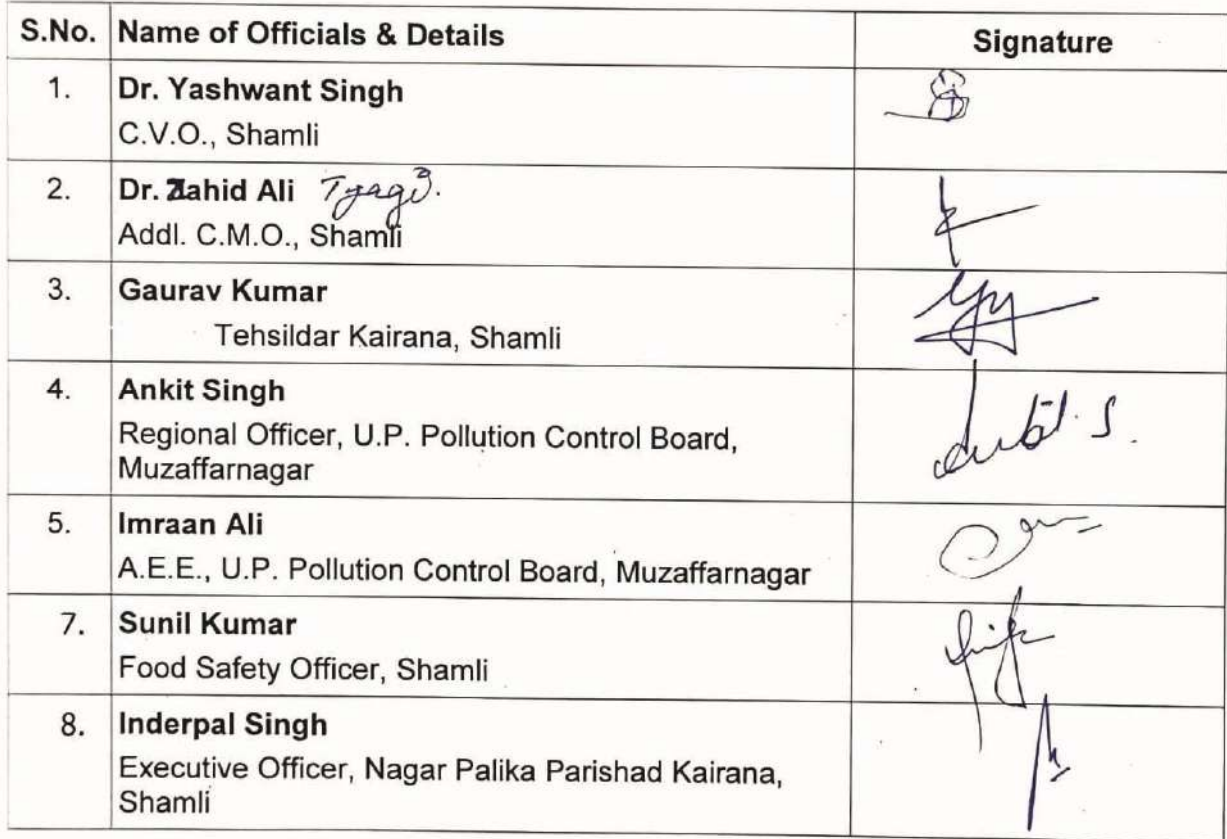 S.No. Name of Officials & Details Signature
1. Dr. Yashwant Singh
C.V.O., Shamli
2. Dr. Zahid Ali Tyagi.
Addl. C.M.O., Shamli
3. Gaurav Kumar
Tehsildar Kairana, Shamli
4. Ankit Singh
Regional Officer, U.P. Pollution Control Board,
Muzaffarnagar
Ankit S.
5. Imraan Ali
A.E.E., U.P. Pollution Control Board, Muzaffarnagar
7. Sunil Kumar
Food Safety Officer, Shamli
8. Inderpal Singh
Executive Officer, Nagar Palika Parishad Kairana,
Shamli